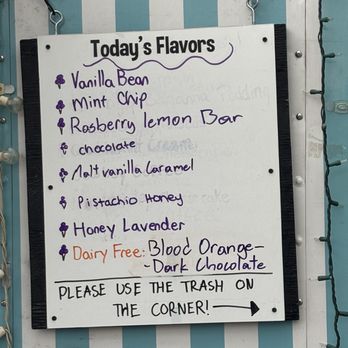 Today's Flavors
Vanilla Bean
Mint Chip
Rasberry lemon Bar
chocolate
Malt vanilla Caramel
Pistachio Honey
Honey Lavender
Dairy Free: Blood Orange-
-Dark Chocolate
PLEASE USE THE TRASH ON
THE CORNER!